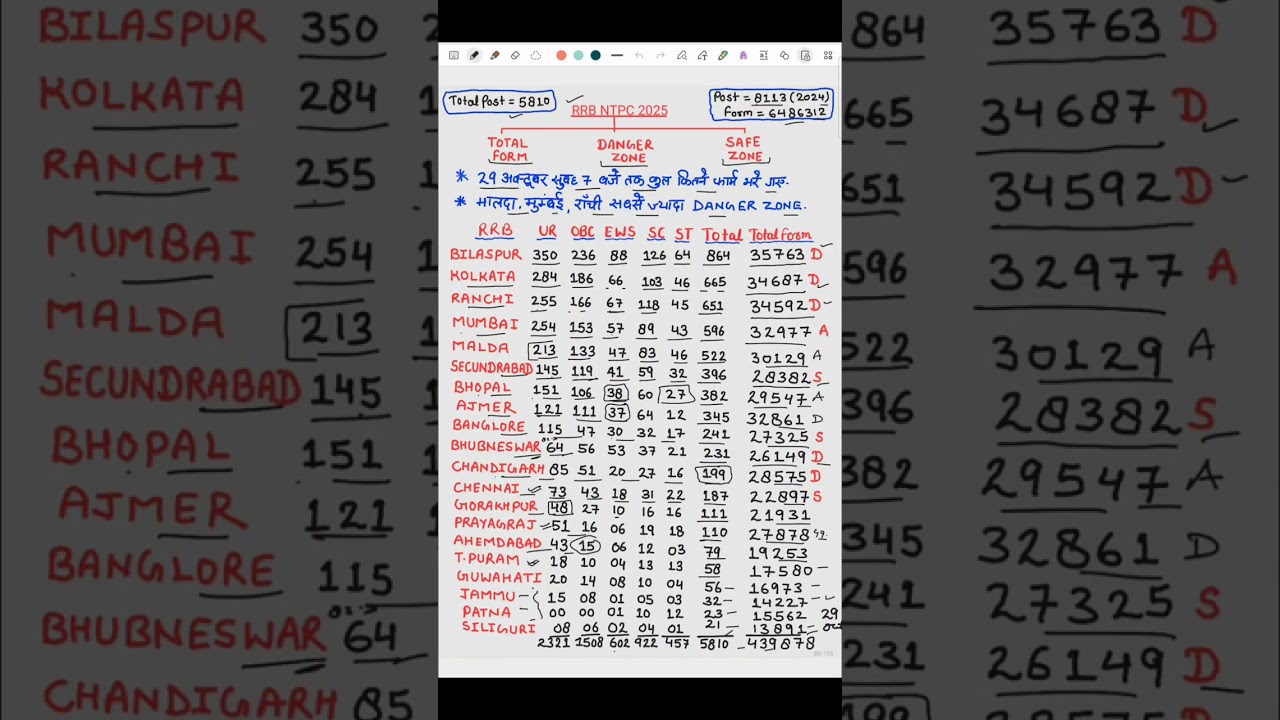 Total Post = 5810
RRB NTPC 2025
Post = 8113 (2024)
Form = 6486312
TOTAL FORM
DANGER ZONE
SAFE ZONE
* 29 अक्टूबर सुबह 7 बजे तक कुल कितने फार्म भरें गए.
* मालदा, मुम्बई, राँची सबसे ज्यादा DANGER ZONE.
RRB UR OBC EWS SC ST Total Total form
BILASPUR 350 236 88 126 64 864 35763 D
KOLKATA 284 186 66 103 46 665 34687 D
RANCHI 255 166 67 118 45 651 34592 D
MUMBAI 254 153 57 89 43 596 32977 A
MALDA 213 133 47 83 46 522 30129 A
SECUNDRABAD 145 119 41 59 32 396 28382 S
BHOPAL 151 106 38 60 27 382 29547 A
AJMER 121 111 37 64 12 345 32861 D
BANGLORE 115 47 30 32 17 241 27325 S
BHUBNESWAR 64 56 53 37 21 231 26149 D
CHANDIGARH 85 51 20 27 16 199 28575 D
CHENNAI 73 43 18 31 22 187 22897 S
GORAKHPUR 48 27 10 16 16 111 21931
PRAYAGRAJ 51 16 06 19 18 110 27878
AHEMDABAD 43 15 06 12 03 79 19253
T.PURAM 18 10 04 13 13 58 17580
GUWAHATI 20 14 08 10 04 56 16973
JAMMU 15 08 01 05 03 32 14227
PATNA 00 00 01 10 12 23 15562 29
SILIGURI 08 06 02 04 01 21 13891
2321 1508 602 922 457 5810 439878
BILASPUR 350
KOLKATA 284
RANCHI 255
MUMBAI 254
MALDA 213
SECUNDRABAD 145
BHOPAL 151
AJMER 121
BANGLORE 115
BHUBNESWAR 64
CHANDIGARH 85
864 35763 D
665 34687 D
34592 D
596 32977 A
522 30129 A
396 28382 S
382 29547 A
345 32861 D
241 27325 S
231 26149 D